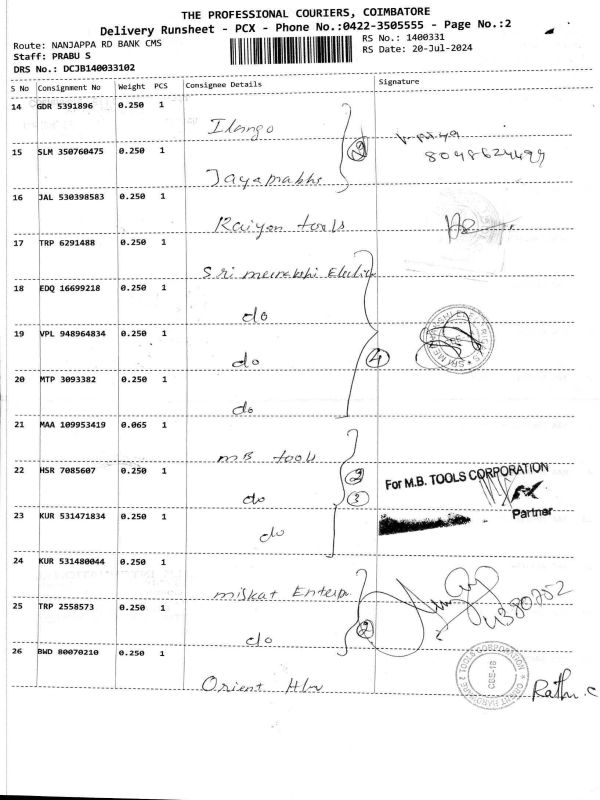 THE PROFESSIONAL COURIERS, COIMBATORE
Delivery Runsheet - PCX - Phone No.:0422-3505555 - Page No.:2
Route: NANJAPPA RD BANK CMS
RS No.: 1400331
Staff: PRABU S
RS Date: 20-Jul-2024
DRS No.: DCJB140033102
S No Consignment No Weight PCS Consignee Details Signature
14 GDR 5391896 0.250 1
Ilango
15 SLM 350760475 0.250 1
8048624499
Jayaprabha
16 JAL 530398583 0.250 1
Raiyan tools
17 TRP 6291488 0.250 1
Sri meenakshi Electric
18 EDQ 16699218 0.250 1
do
19 VPL 948964834 0.250 1
do
4
20 MTP 3093382 0.250 1
do
21 MAA 109953419 0.065 1
MB tools
22 HSR 7085607 0.250 1
For M.B. TOOLS CORPORATION
do
3
Partner
23 KUR 531471834 0.250 1
do
24 KUR 531480044 0.250 1
miskat Enterpr
25 TRP 2558573 0.250 1
do
2
26 BWD 80070210 0.250 1
ORIENT HARDWARE & TOOLS CORPORATION
CBE-18
Orient Hlw
Rathi.C